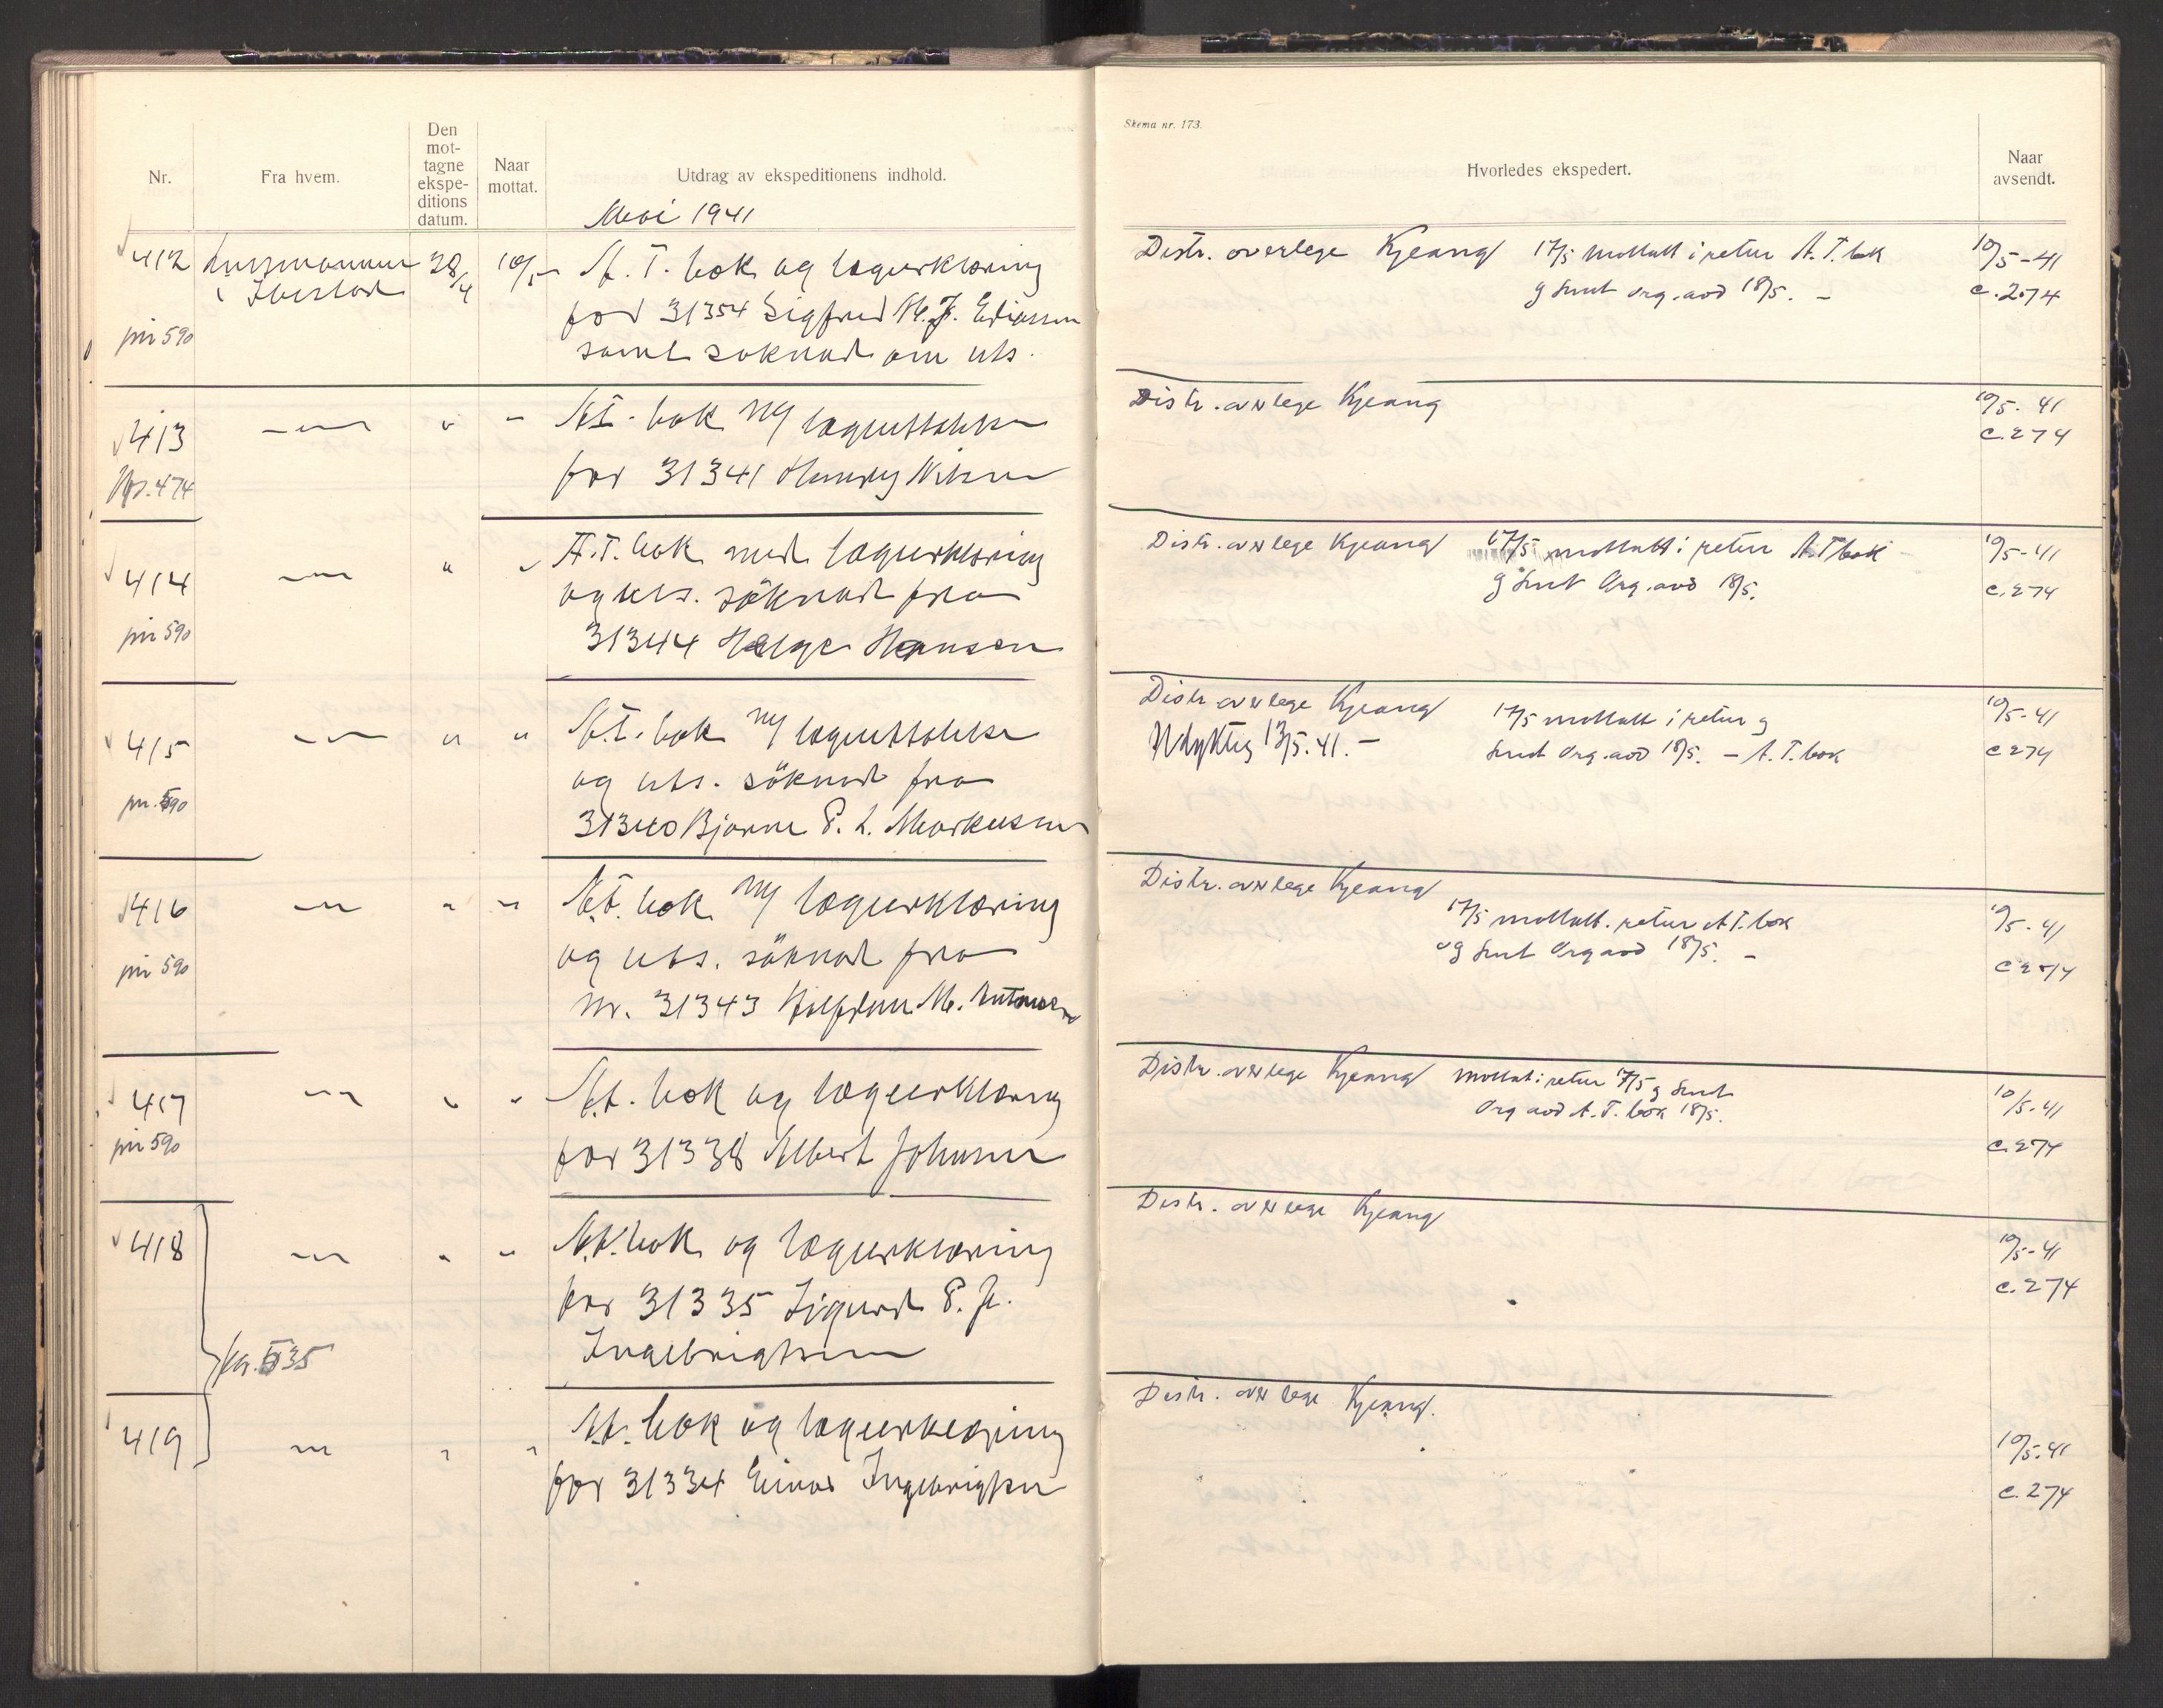 Nr.
Fra hvem.
Den
mot-
tagne
ekspe-
ditions
datum.
Naar
mottat.
Utdrag av ekspeditionens indhold.
Mai 1941
412 Lensmannen 28/4 10/5 A.T. bok og lægeerklæring
i Ibestad
for 31354 Sigfred M. J.
pnr 590
samt søknad om uts.
413 " " A.T. bok og lægeuttalelse
Nr. 474
for 31341 Henry Nilsen
414 " " A.T. bok med lægeerklæring
og uts. söknad fra
pnr 590
31344 Helge Hansen
415 " " A.T. bok og lægeuttalelse
og uts. söknad fra
pnr. 590
31340 Bjarne P. L. Markussen
416 " " A.T. bok og lægeerklæring
og uts. söknad fra
pnr 590
nr. 31343 Halfdan M. Antonsen
417 " " A.t. bok og lægeerklæring
pnr 590
for 31338 Albert Johansen
418 " " A.t. bok og lægeerklæring
for 31335 Sigurd P. J.
Ingebrigtsen
535
419 " " A.t. bok og lægeerklæring
for 31334 Einar Ingebrigtsen
Skema nr. 173.
Hvorledes ekspedert.
Naar
avsendt.
Distr. overlege Kjeang 17/5 mottatt i retur A.T. bok 10/5-41
g sendt org. avd 18/5. - c. 274
Distr. overlege Kjeang 10/5. 41
c. 274
Distr. overlege Kjeang 17/5 mottatt i retur A.T bok 10/5-41
g sendt Org. avd 18/5. c. 274
Distr overlege Kjeang 17/5 mottatt i retur g 10/5-41
Udyktig 13/5. 41. - sendt Org. avd 18/5. - A.T. bok c 274
Distr. overlege Kjeang
17/5 mottatt. retur A T. bok 10/5. 41
og sendt Org avd 18/5. - c 274
Distr. overlege Kjeang mottat i retur 17/5 g sendt
Org avd A.T. bok 18/5. 10/5. 41
c. 274
Distr. overlege Kjeang
10/5-41
c. 274
Distr. overlege Kjeang.
10/5. 41
c. 274